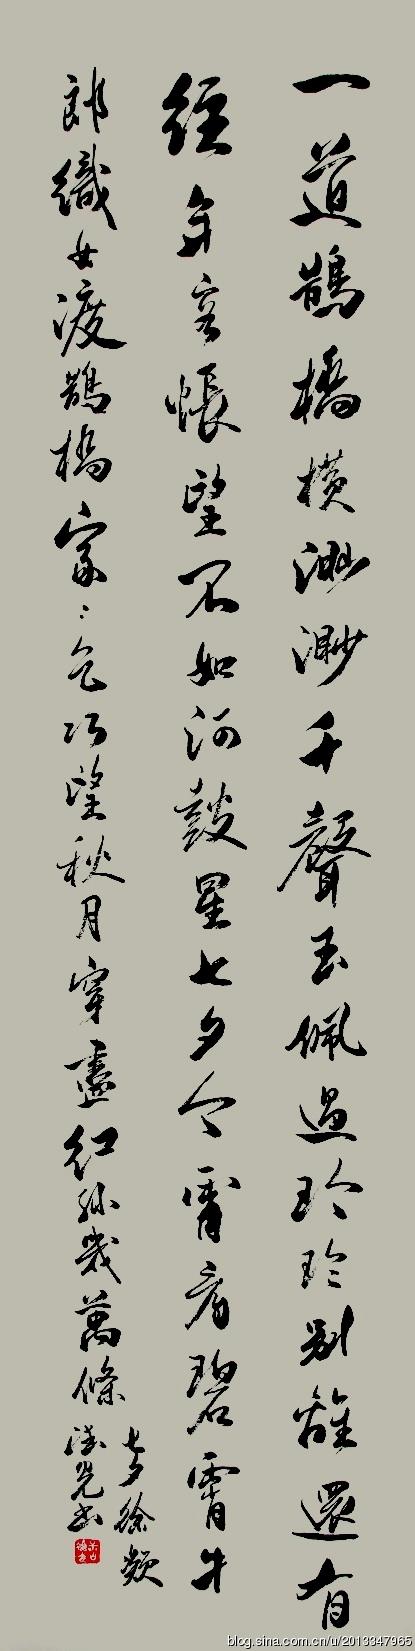 一道鵲橋橫渺渺千聲玉佩過玲玲別離還有
經年客悵望不如河鼓星七夕今霄看碧霄牛
郎織女渡鵲橋家〻乞巧望秋月穿盡紅絲幾萬條
七夕徐頻
德先書
blog.sina.com.cn/u/2013347965